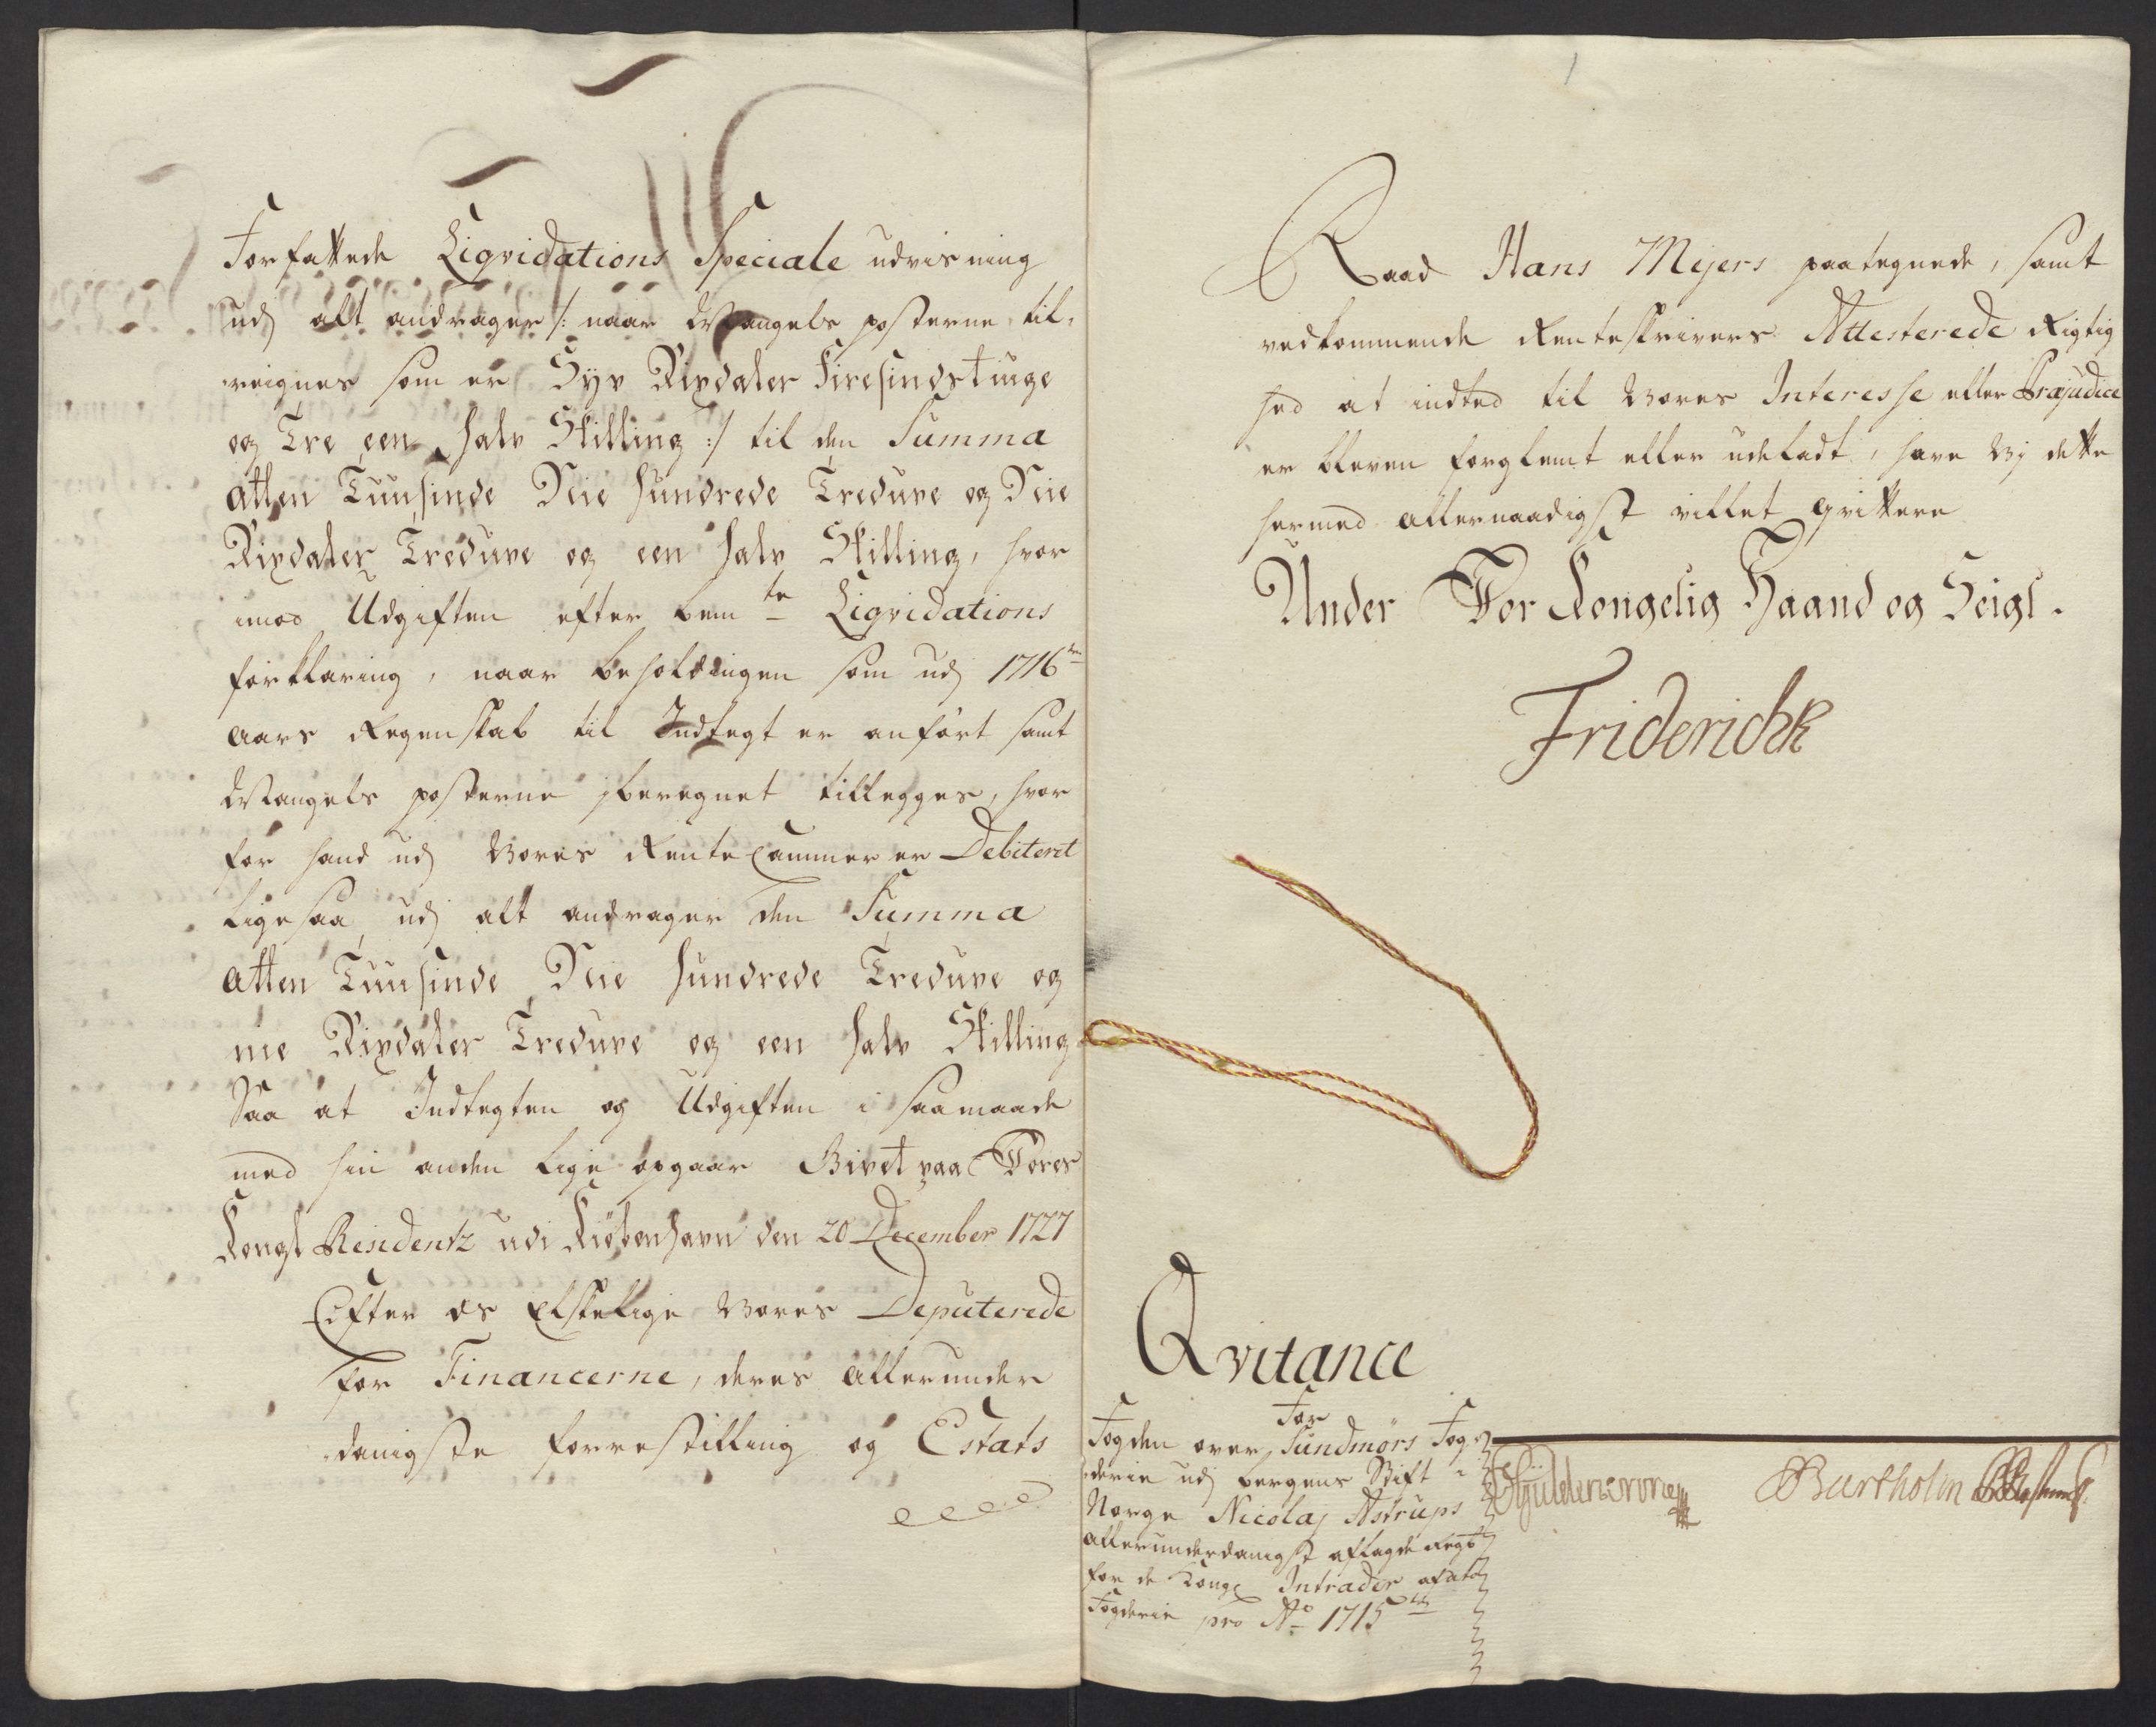 Forfattede Liqvidations Speciale udvisning
udj alt andrager /: naar Mangels posterne til,
reignes som er Syv Rixdaler Firesindstiuge
og Tre een halv Skilling :/ til den Summa
Atten Tuusinde Nie hundrede Tredive og Nie
Rixdaler Tredive og een halv Skilling, hvor
imod Udgiften efter bemte Liqvidations
forklaring, naar beholdningen som udj 1716de
aars Regenskab til Indtegt er anført samt
Mangels posterne iberegnet tillegges, hvor
for hand udj Vores Rente Cammer er Debiteret
ligesaa udj alt andrager den Summa
Atten Tuusinde Nie hundrede Tredive og
nie Rixdaler Tredive og een halv Skilling
Saa at Indtegten og Udgiften i saamaade
med hin anden lige opgaar Givet paa Vores
Kongl Residentz udi Kiøbenhavn den 20 December 1727
Efter os Elskelige Vores Deputerede
for Financerne, deres allerunder
danigste forrestilling og Estats
Raad Hans Mejers paategnede, samt
vedkommende Renteskrivers Attesterede Rigtig
hed at indted til Vores Interesse eller Præjudice
er bleven forglemt eller udeladt, have Vj dette
hermed allernaadigst villet qvittere
Under Vor Kongelig Haand og Seigl.
Friderich R
Qvitance
For
Fogden over Sundmørs Fog,
derie udj Bergens Stift i
Norge Nicolaj Astrups
allerunderdanigst aflagde Regsk
for de Kongl Intrader af atd
Fogderie pro Ao 1715
Gÿldencrone
Bartholin